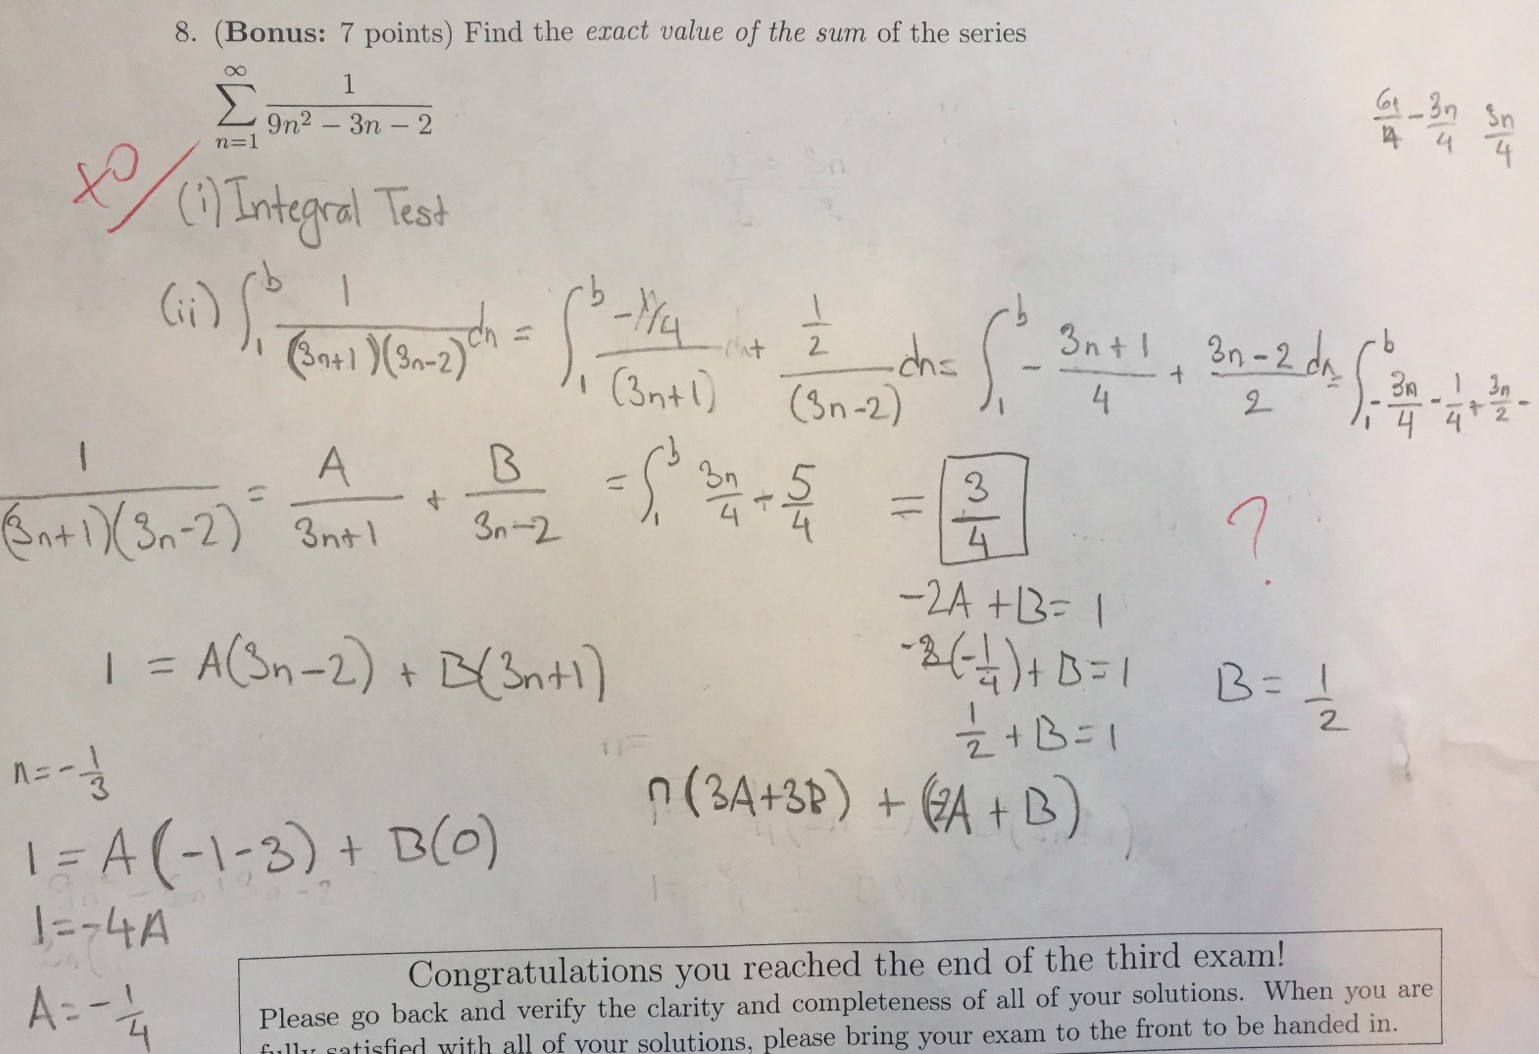 8. (Bonus: 7 points) Find the exact value of the sum of the series
∞
∑ 1 / (9n² − 3n − 2)
n=1
6n/4 - 3n/4 3n/4
x0
(i) Integral Test
(ii) ∫₁ᵇ 1/((3n+1)(3n-2)) dn = ∫₁ᵇ -1/4/(3n+1) + 1/2/(3n-2) dn = ∫₁ᵇ - (3n+1)/4 + (3n-2)/2 dn = ∫₁ᵇ - 3n/4 - 1/4 + 3n/2 -
1/((3n+1)(3n-2)) = A/(3n+1) + B/(3n-2) = ∫₁ᵇ 3n/4 - 5/4 = 3/4 ?
-2A + B = 1
1 = A(3n-2) + B(3n+1)
-2(-1/4) + B = 1 B = 1/2
1/2 + B = 1
n = -1/3
n(3A+3B) + (-2A + B)
1 = A(-1-3) + B(0)
1 = -4A
A = -1/4
Congratulations you reached the end of the third exam!
Please go back and verify the clarity and completeness of all of your solutions. When you are
fully satisfied with all of your solutions, please bring your exam to the front to be handed in.